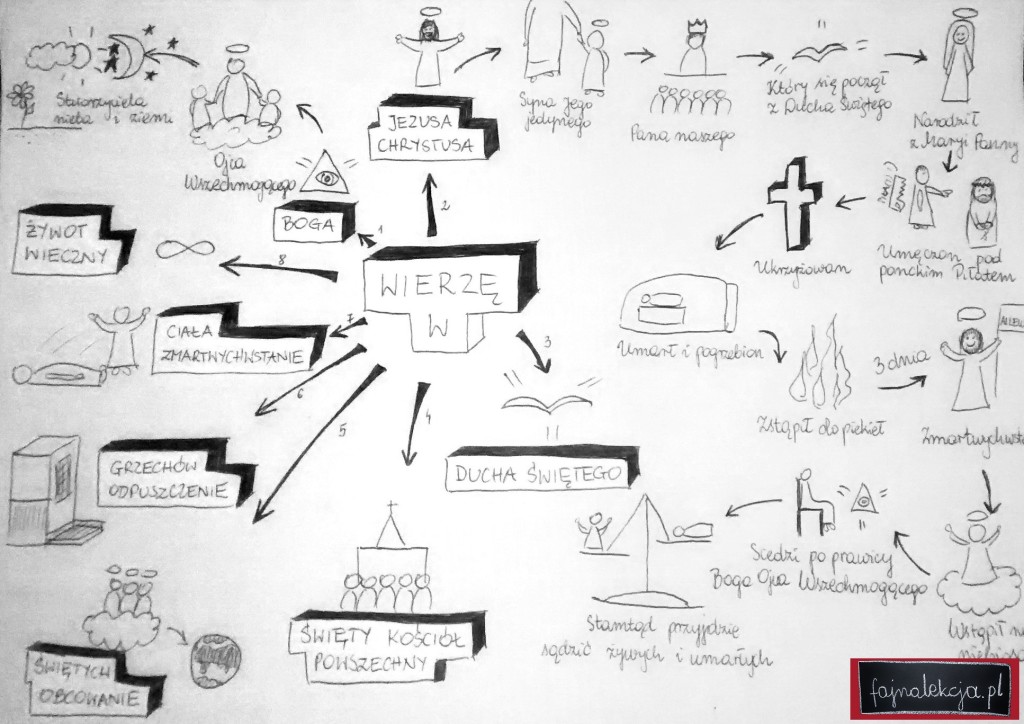 WIERZĘ
W
1
BOGA
Ojca
Wszechmogącego
Stworzyciela
nieba i ziemi
2
JEZUSA
CHRYSTUSA
Syna Jego
jedynego
Pana naszego
Który się począł
z Ducha Świętego
Narodził
z Maryi Panny
Umęczon pod
ponckim Piłatem
Ukrzyżowan
Umarł i pogrzebion
Zstąpił do piekieł
3 dnia
ALLEL
Zmartwychwsta
Wstąpił n
niebios
Siedzi po prawicy
Boga Ojca Wszechmogącego
Stamtąd przyjdzie
sądzić żywych i umarłych
3
DUCHA ŚWIĘTEGO
4
ŚWIĘTY KOŚCIÓŁ
POWSZECHNY
5
ŚWIĘTYCH
OBCOWANIE
6
GRZECHÓW
ODPUSZCZENIE
7
CIAŁA
ZMARTWYCHWSTANIE
8
ŻYWOT
WIECZNY
fajnalekcja.pl